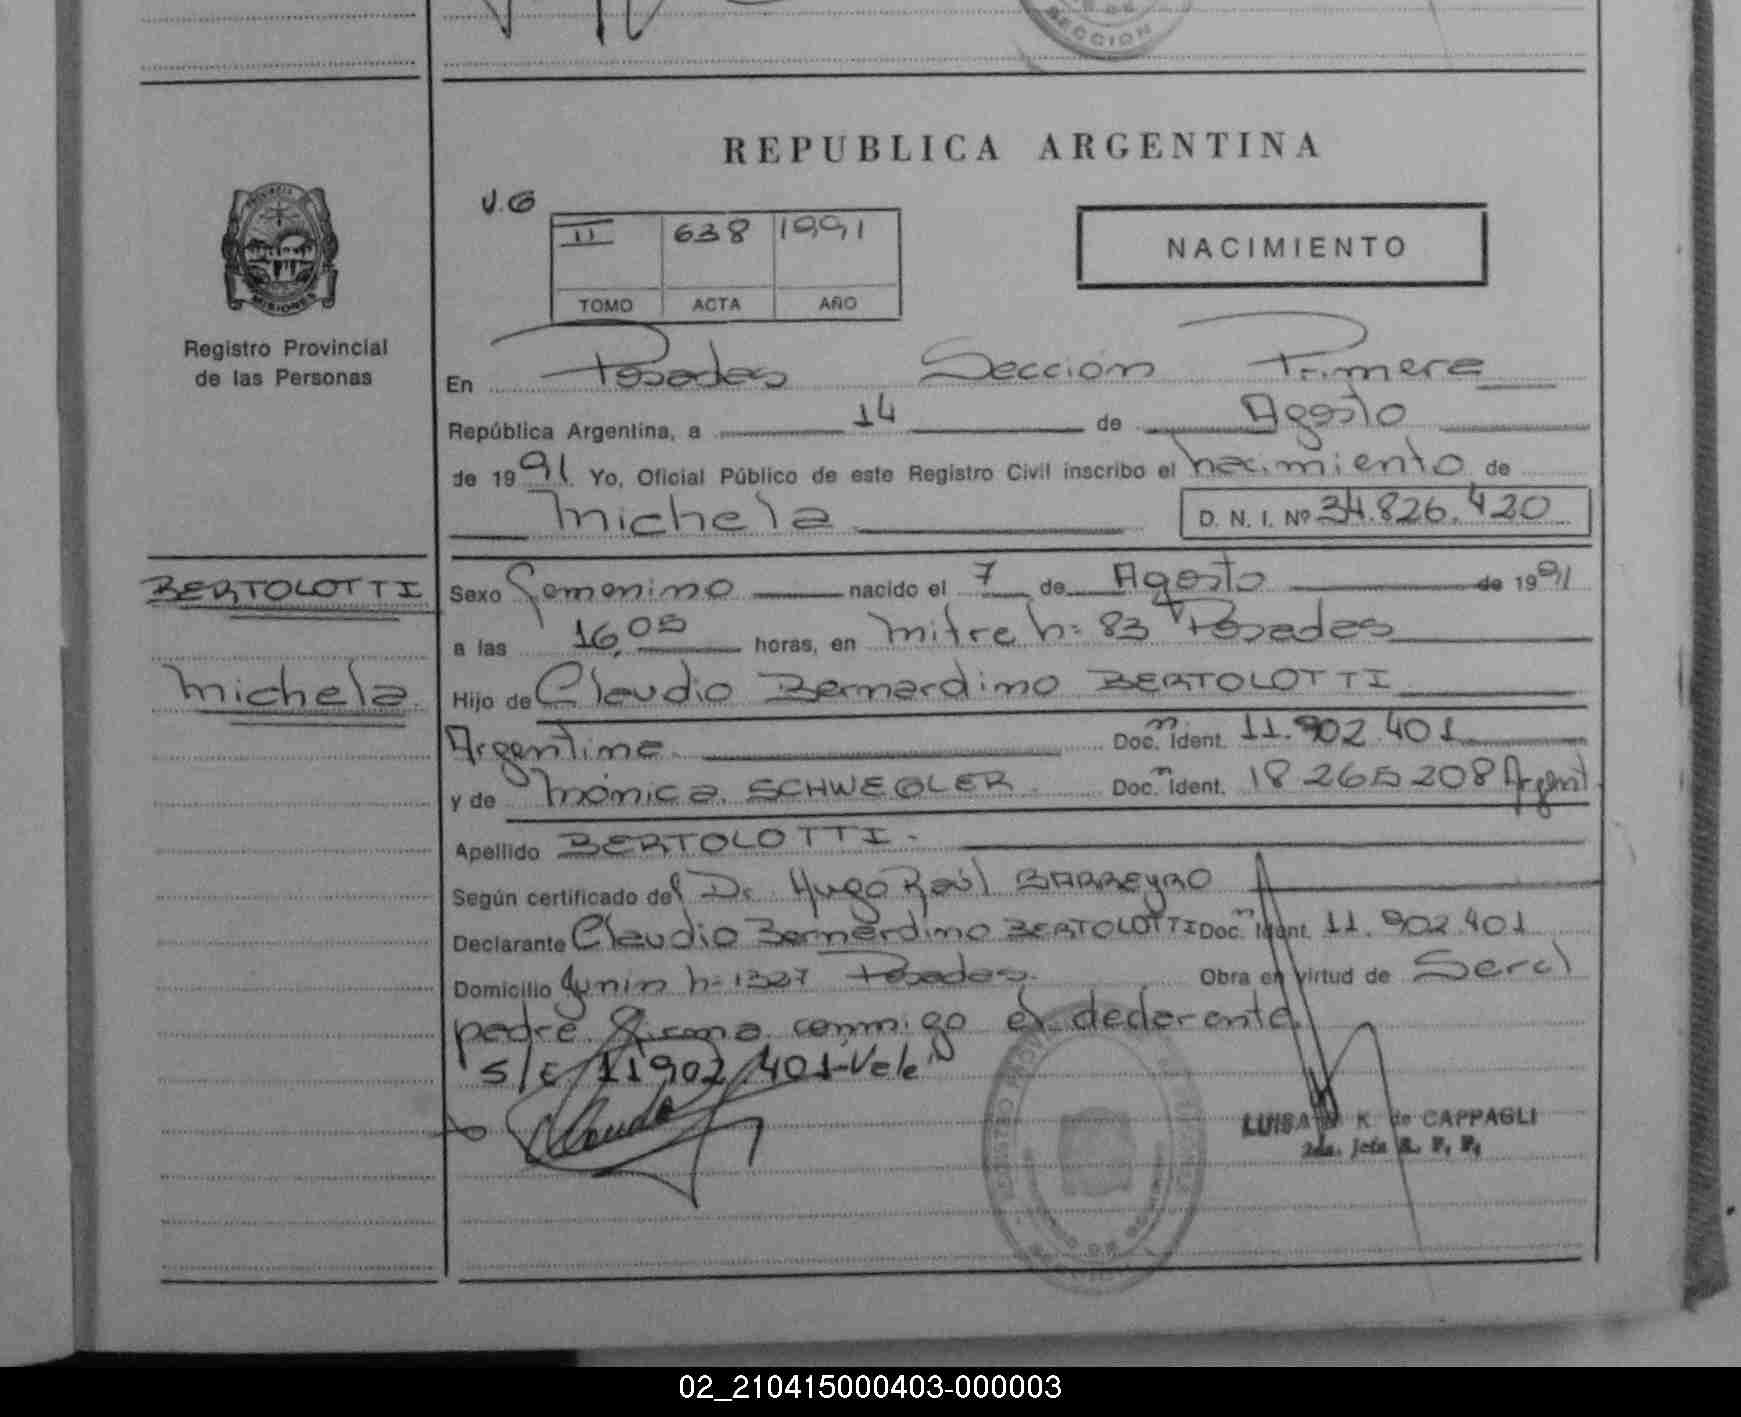 SECCION
REPUBLICA ARGENTINA
J.G
II 638 1991
TOMO ACTA AÑO
NACIMIENTO
PROVINCIA
MISIONES
Registro Provincial
de las Personas
En Posadas Sección Primera
República Argentina, a 14 de Agosto
de 1991 Yo, Oficial Público de este Registro Civil inscribo el nacimiento de
Michela D. N. I. Nº 34.826.420
BERTOLOTTI
Michela
Sexo Femenino nacido el 7 de Agosto de 1991
a las 16,05 horas, en Mitre nº 83 Posadas
Hijo de Claudio Bernardino BERTOLOTTI
Argentino Doc. Ident. 11.902.401
y de Mónica SCHWEGLER Doc. Ident. 18 265 208 Argent
Apellido BERTOLOTTI.-
Según certificado del Dr Hugo Raúl BARREYRO
Declarante Claudio Bernardino BERTOLOTTI Doc. Ident. 11.902.401
Domicilio Junin nº 1327 Posadas. Obra en virtud de Ser el
padre Firma conmigo el declarante.
S/c 11902.401-Vale
LUISA K. de CAPPAGLI
2da. Jefa R. P. P.
02_210415000403-000003